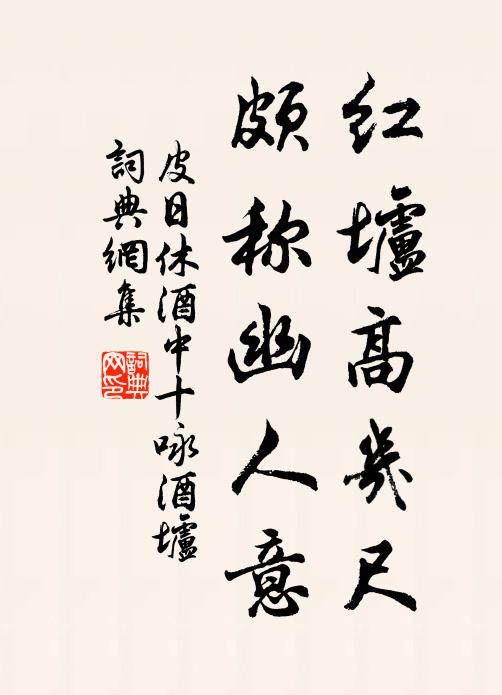 红壚高幾尺
頗称幽人意
皮日休酒中十咏酒壚
詞典網集
詞典网印